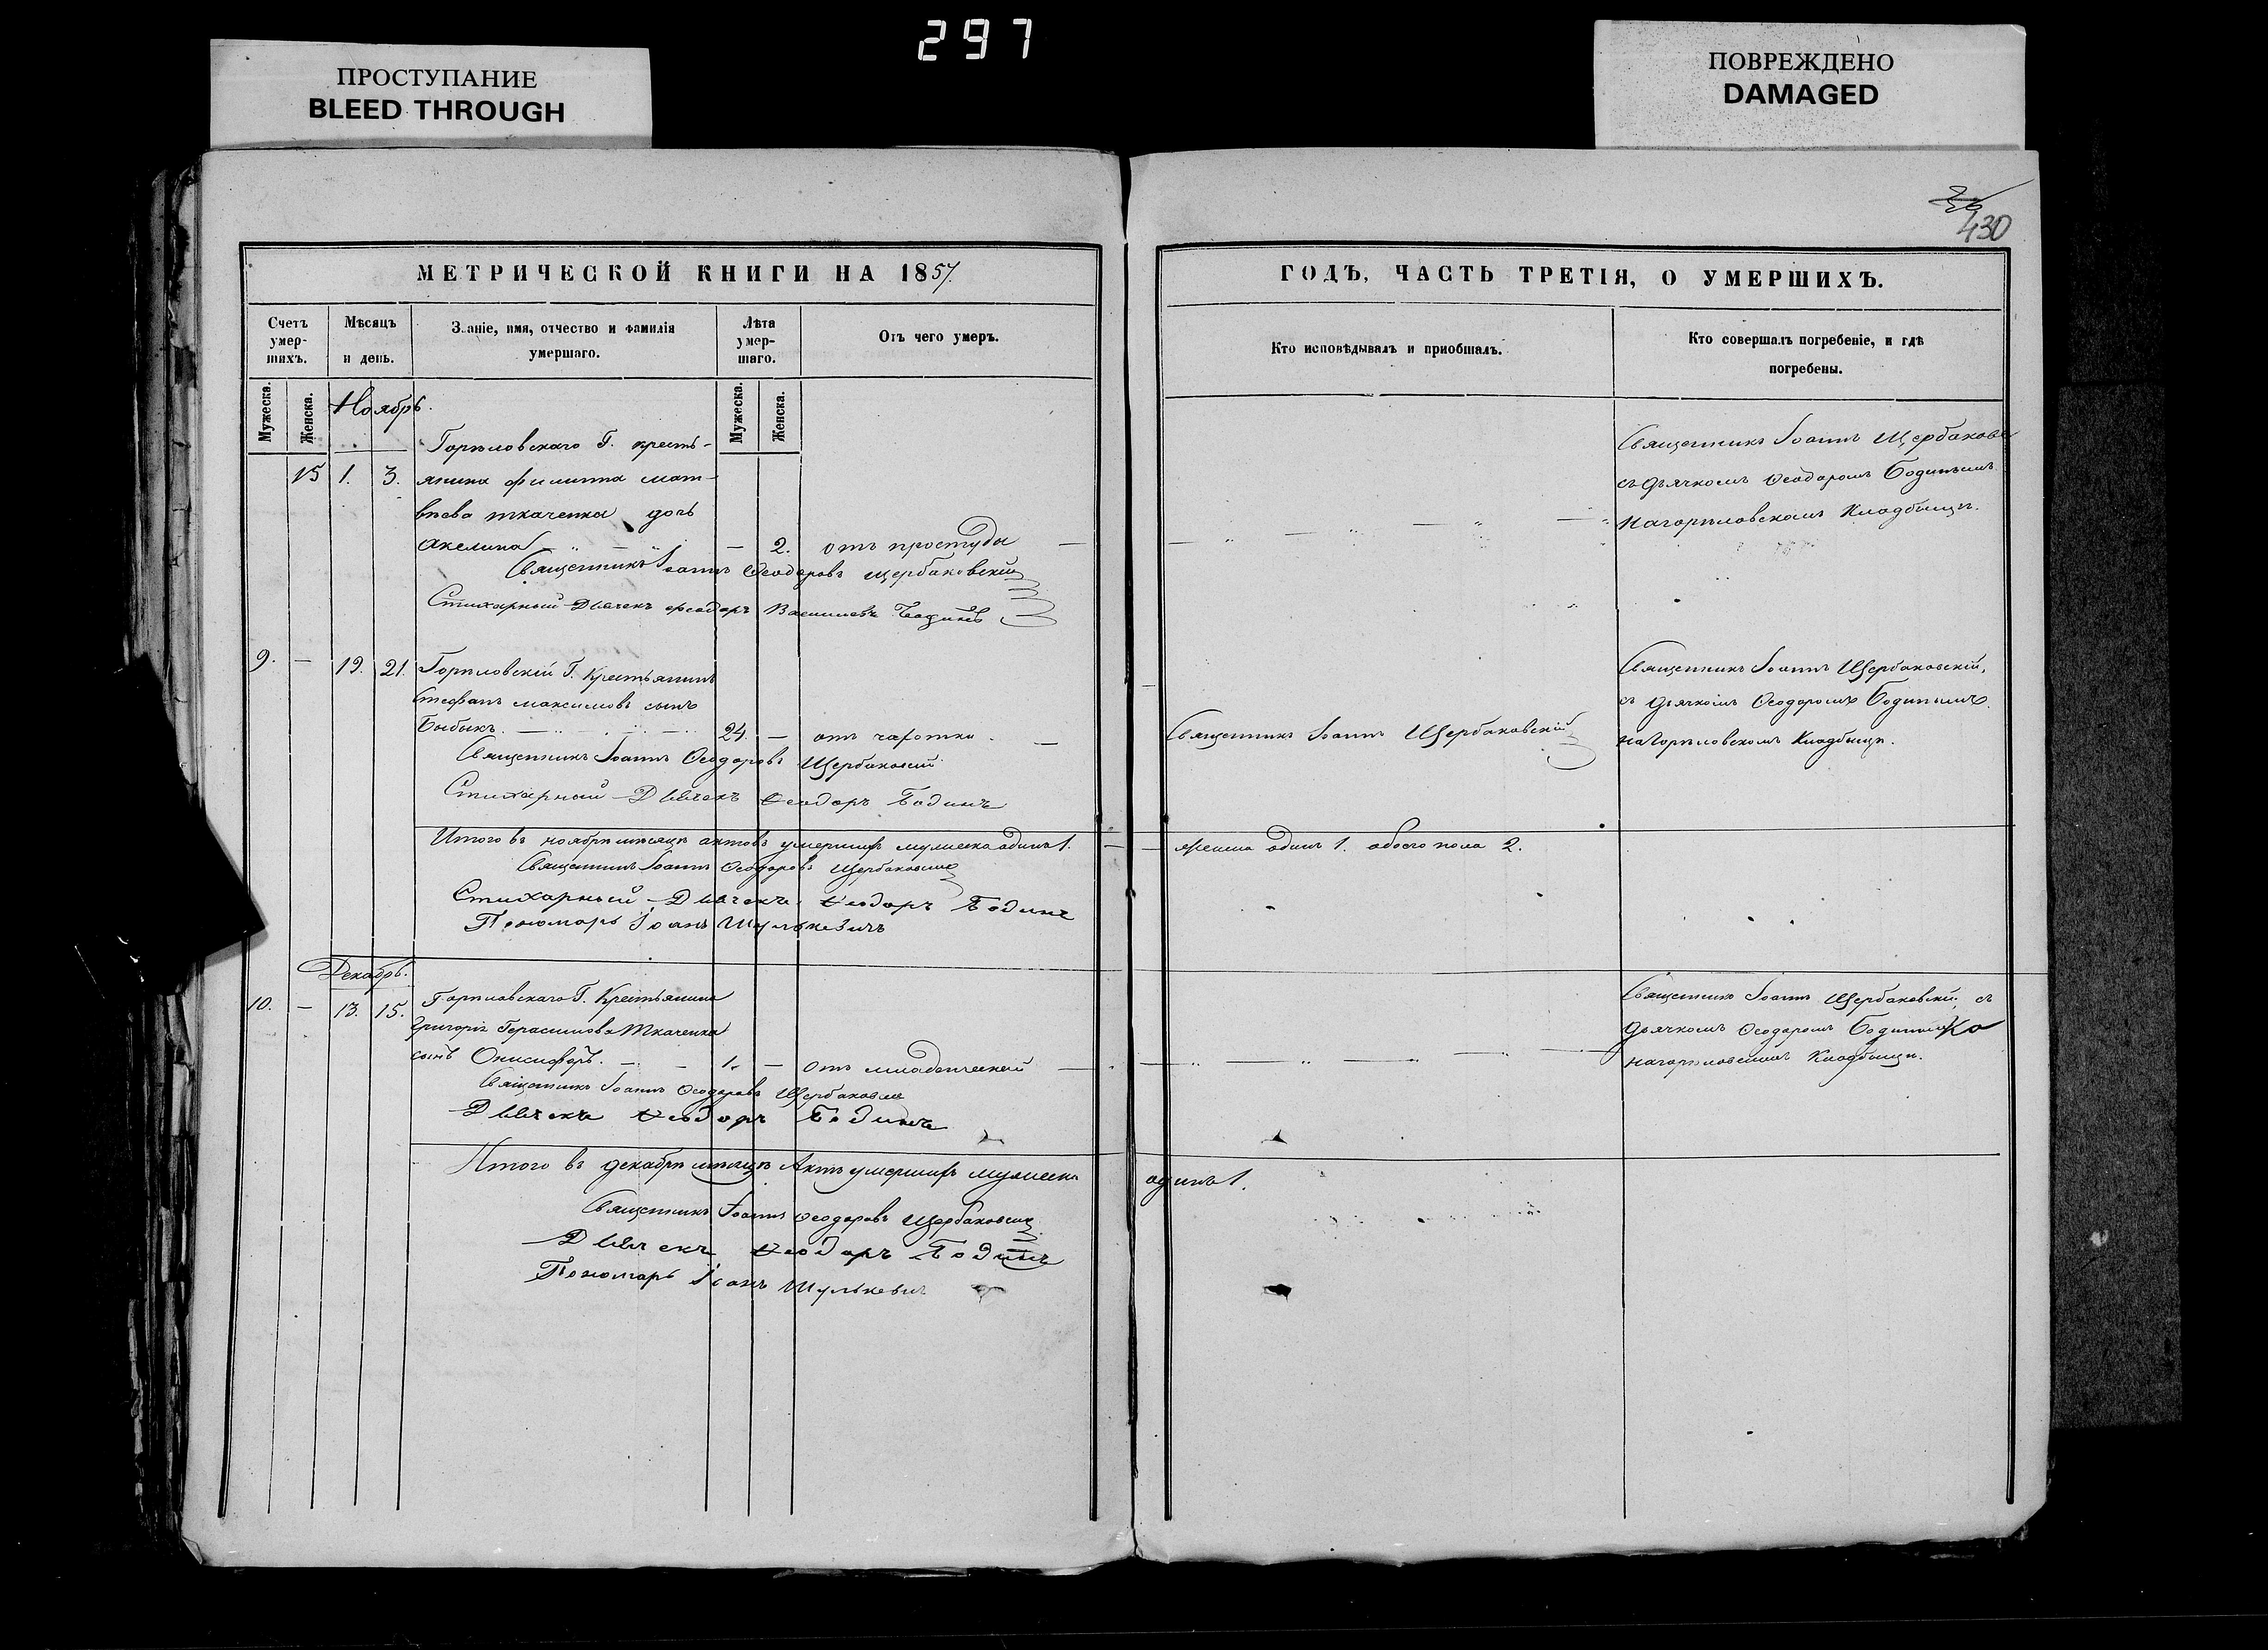 297
ПРОСТУПАНИЕ
BLEED THROUGH
ПОВРЕЖДЕНО
DAMAGED
430
МЕТРИЧЕСКОЙ КНИГИ НА 1857.
Счетъ умер-шихъ.
Мѣсяцъ и день.
Званіе, имя, отчество и фамилія умершаго.
Лѣта умер-шаго.
Отъ чего умеръ.
Мужеска.
Женска.
Мужеска.
Женска.
Ноябрь.
Горѣловскаго Г. кресть-
15 1. 3. янина Филиппа мат-
вѣева ткаченка дочь
Акелина — 2. отъ простуды —
Священникъ Іоаннъ Ѳеодоровъ Щербаковскій
Стихарный Дьячекъ Феодоръ Васильевъ Бодинъ
9. — 19. 21. Горѣловскій Г. Крестьянинъ
Стефанъ максимовъ сынъ
Быбыкъ. 24. — отъ чахотки. —
Священникъ Іоаннъ Ѳеодоровъ Щербаковскій
Стихарный Дьячекъ Ѳеодоръ Бодинъ
Итого въ ноябрѣ мѣсяцѣ актовъ умершихъ мужеска одинъ 1. —
Священникъ Іоаннъ Ѳеодоровъ Щербаковскій
Стихарный Дьячекъ Ѳеодоръ Бодинъ
Пономарь Іоанъ Шулькевичъ
Декабрь.
10. — 13. 15. Горѣловскаго Г. Крестьянина
Григорія Герасимова Ткаченка
сынъ Онисифоръ. — 1. — отъ младенческой —
Священникъ Іоаннъ Ѳеодоровъ Щербаковскій
Дьячекъ Ѳеодоръ Бодинъ
Итого въ декабрѣ мѣсяцѣ Актъ умершихъ мужеска
Священникъ Іоаннъ Ѳеодоровъ Щербаковскій
Дьячекъ Ѳеодоръ Бодинъ
Пономарь Іоанъ Шулькевич
ГОДЪ, ЧАСТЬ ТРЕТІЯ, О УМЕРШИХЪ.
Кто исповѣдывалъ и пріобщалъ.
Кто совершалъ погребеніе, и гдѣ
погребены.
Священникъ Іоаннъ Щербаковс
съ дьячкомъ Ѳеодоромъ Бодинымъ
на горѣловскомъ Кладбищѣ.
Священникъ Іоаннъ Щербаковскій,
съ дьячкомъ Ѳеодоромъ Бодинымъ.
Священникъ Іоаннъ Щербаковскій
на Горѣловскомъ Кладбищѣ.
— женска одинъ 1. обоего пола 2.
Священникъ Іоаннъ Щербаковскій, съ
дьячкомъ Ѳеодоромъ Бодинымъ
на горѣловскомъ Кладбищѣ.
одинъ 1.